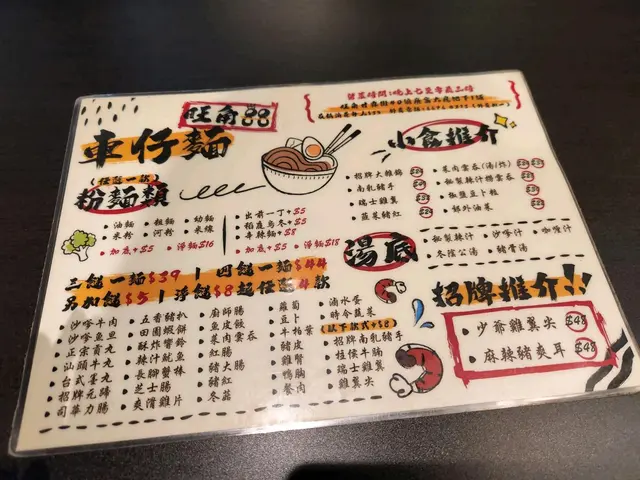 旺角
車仔麵
(任選一款)
粉麵類
油麵
粗麵
幼麵
米粉
河粉
米線
出前一丁+$5
稻庭烏冬+$5
辛辣麵+$8
加底+$5
淨麵$16
加底+$5
淨麵$18
三餸一麵$39 | 四餸一麵$44
另加餸$5 | 淨餸$8起任選4款
沙嗲牛肉
沙嗲魚旦
正宗貢丸
汕頭牛丸
台式墨丸
招牌元蹄
司華力腸
五香豬扒
田園蝦餅
酥炸響鈴
辣汁魷魚
長腳蟹棒
芝士腸
爽滑雞片
廚師腸
魚皮餃
菜肉雲吞
紅腸
豬大腸
豬紅
冬菇
蘿蔔
豆卜
牛柏葉
豬皮
雞腎
鴨胸
餐肉
滷水蛋
時令蔬菜
(以下款式+$8)
招牌南乳豬手
柱侯牛腩
瑞士雞翼
雞翼尖
小食推介
招牌大雞髀
南乳豬手
瑞士雞翼
韮菜豬紅
菜肉雲吞(湯/炸)
秘製辣汁撈雲吞
椒鹽豆卜粒
郊外油菜
湯底
秘製辣汁
沙嗲汁
咖喱汁
冬陰公湯
豬骨湯
招牌推介!!
少爺雞翼尖 $48
麻辣豬爽耳 $48